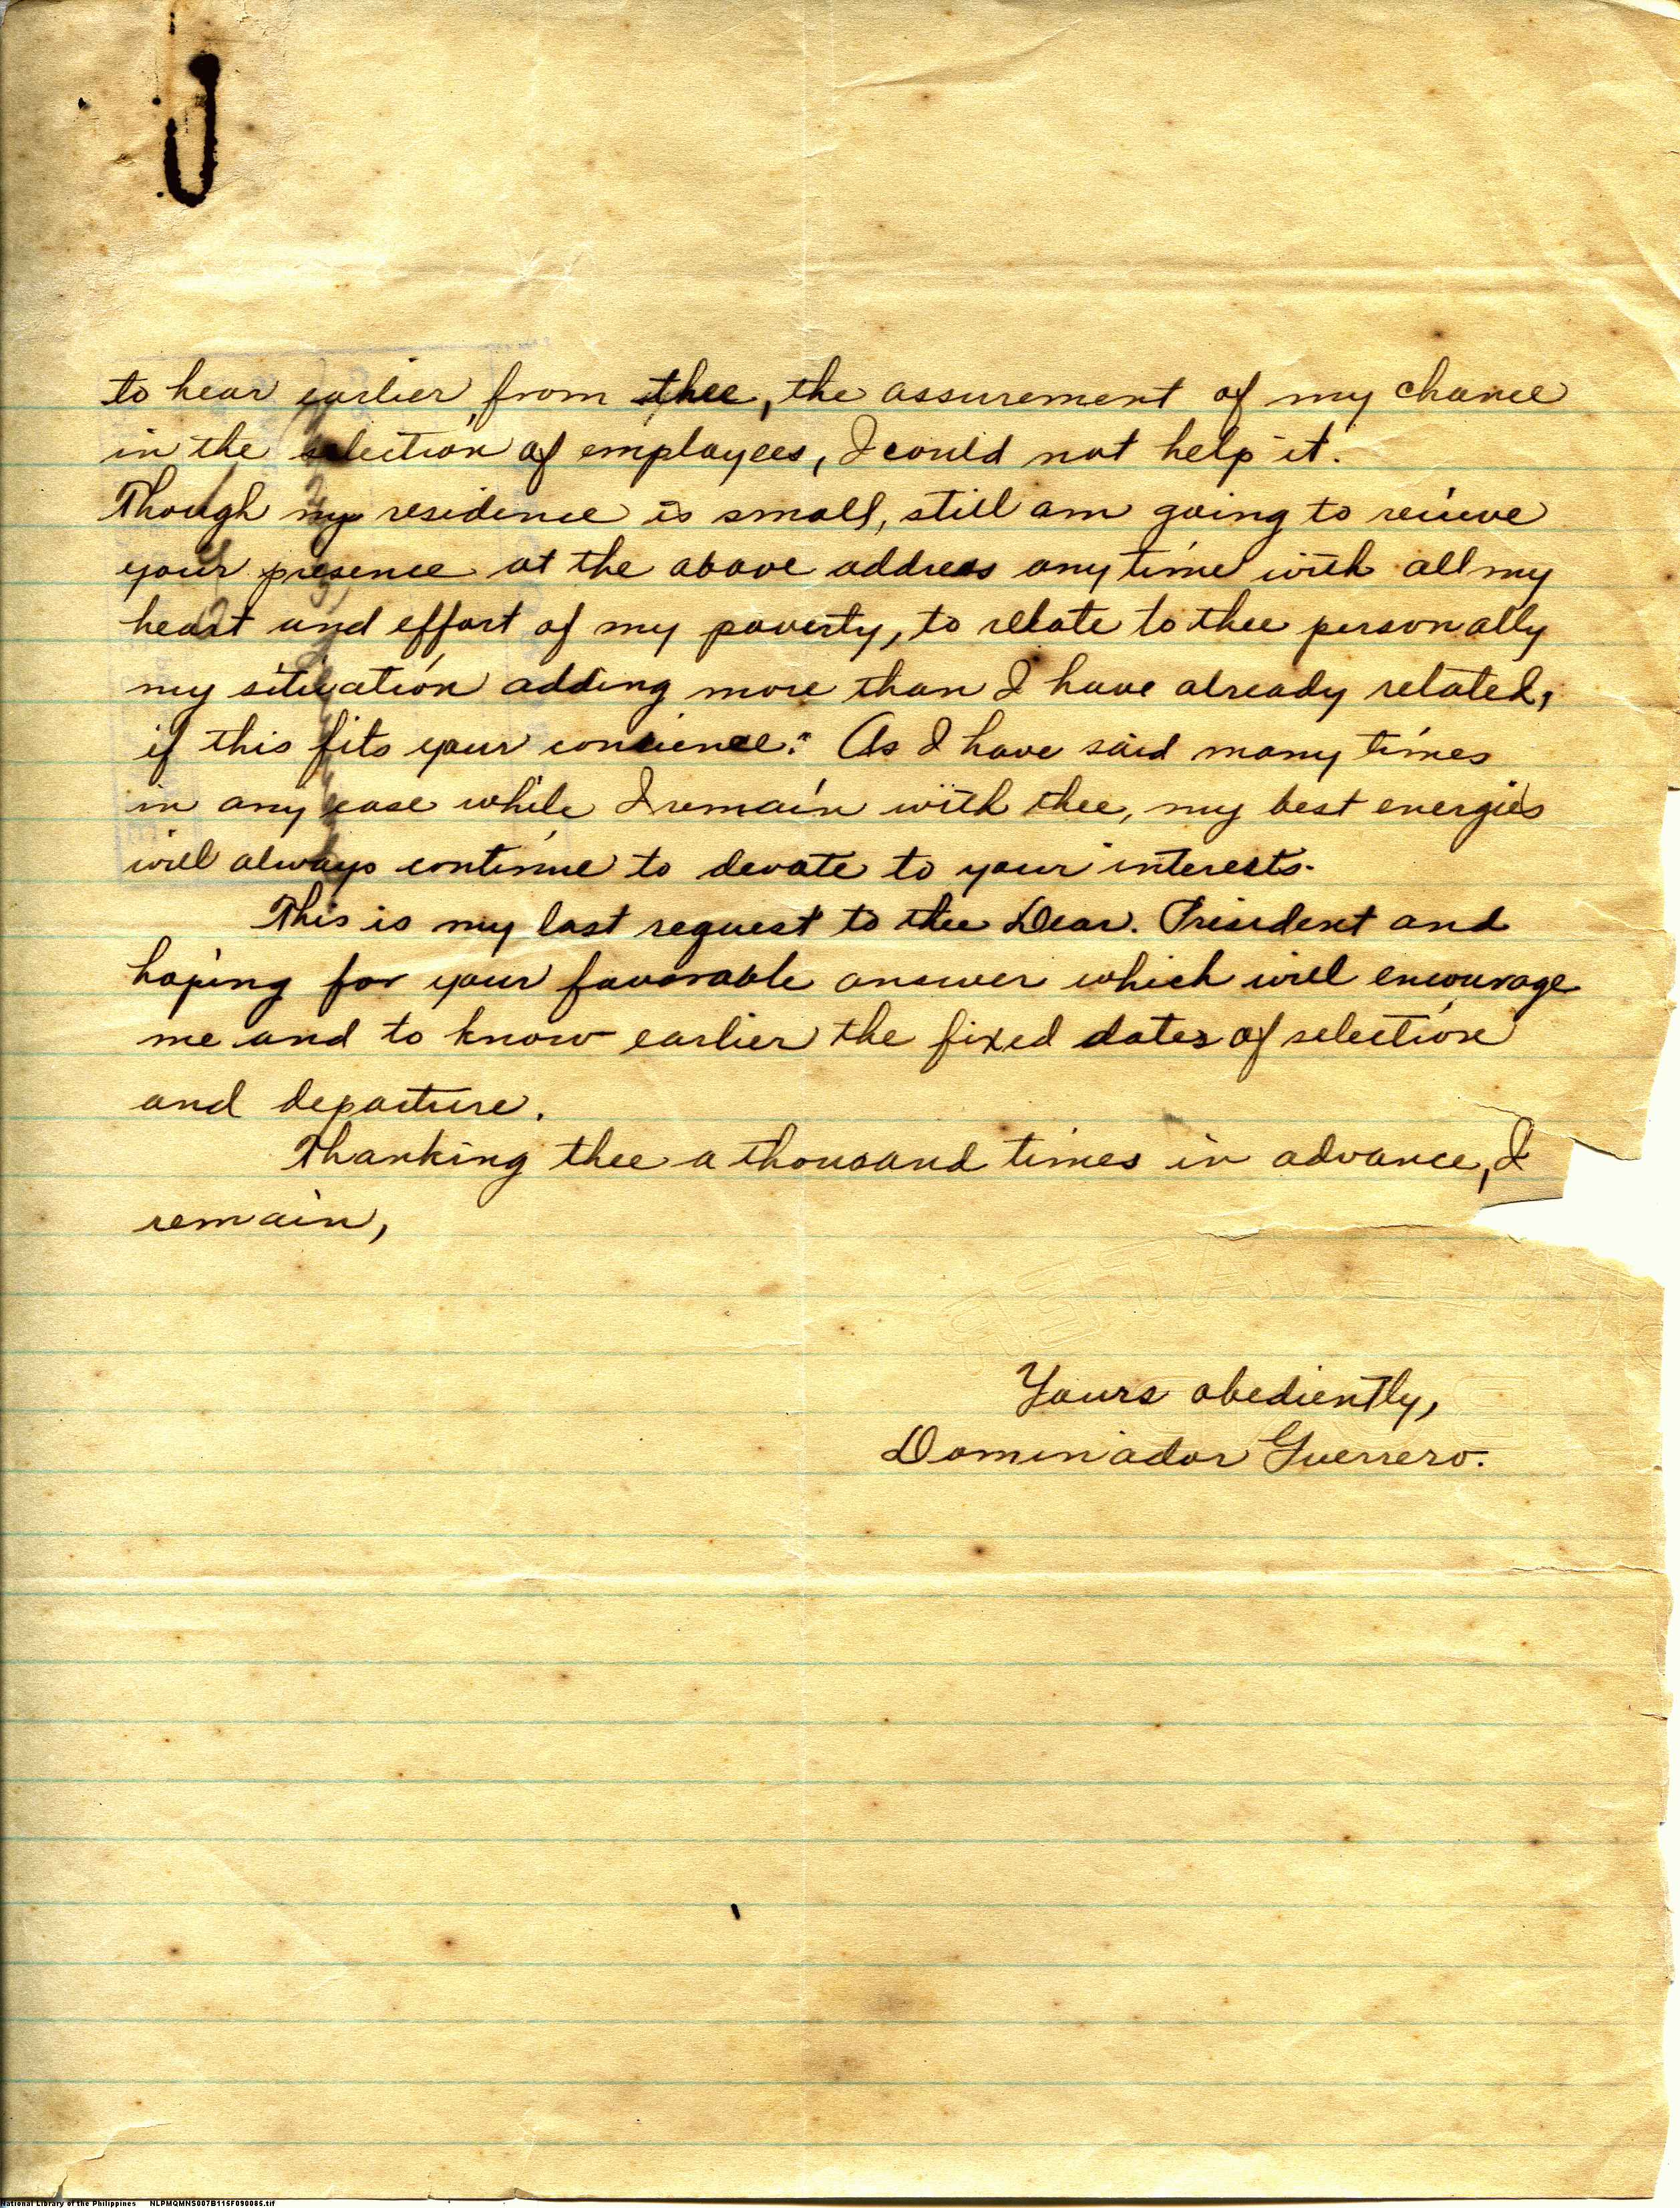 to hear earlier from thee, the assurement of my chance
in the selection of employees, I could not help it.
Though my residence is small, still am going to recieve
your presence at the above address anytime with all my
heart and effort of my poverty, to relate to thee personally
my situation adding more than I have already related,
if this fits your concience. As I have said many times
in any case while I remain with thee, my best energies
will always continue to devote to your interests.
This is my last request to thee Dear. President and
hoping for your favorable answer which will encourage
me and to know earlier the fixed dates of selection
and departure.
Thanking thee a thousand times in advance, I
remain,
Yours obediently,
Dominador Guerrero.
National Library of the Philippines NLPMQMNS007B115F090085.tif